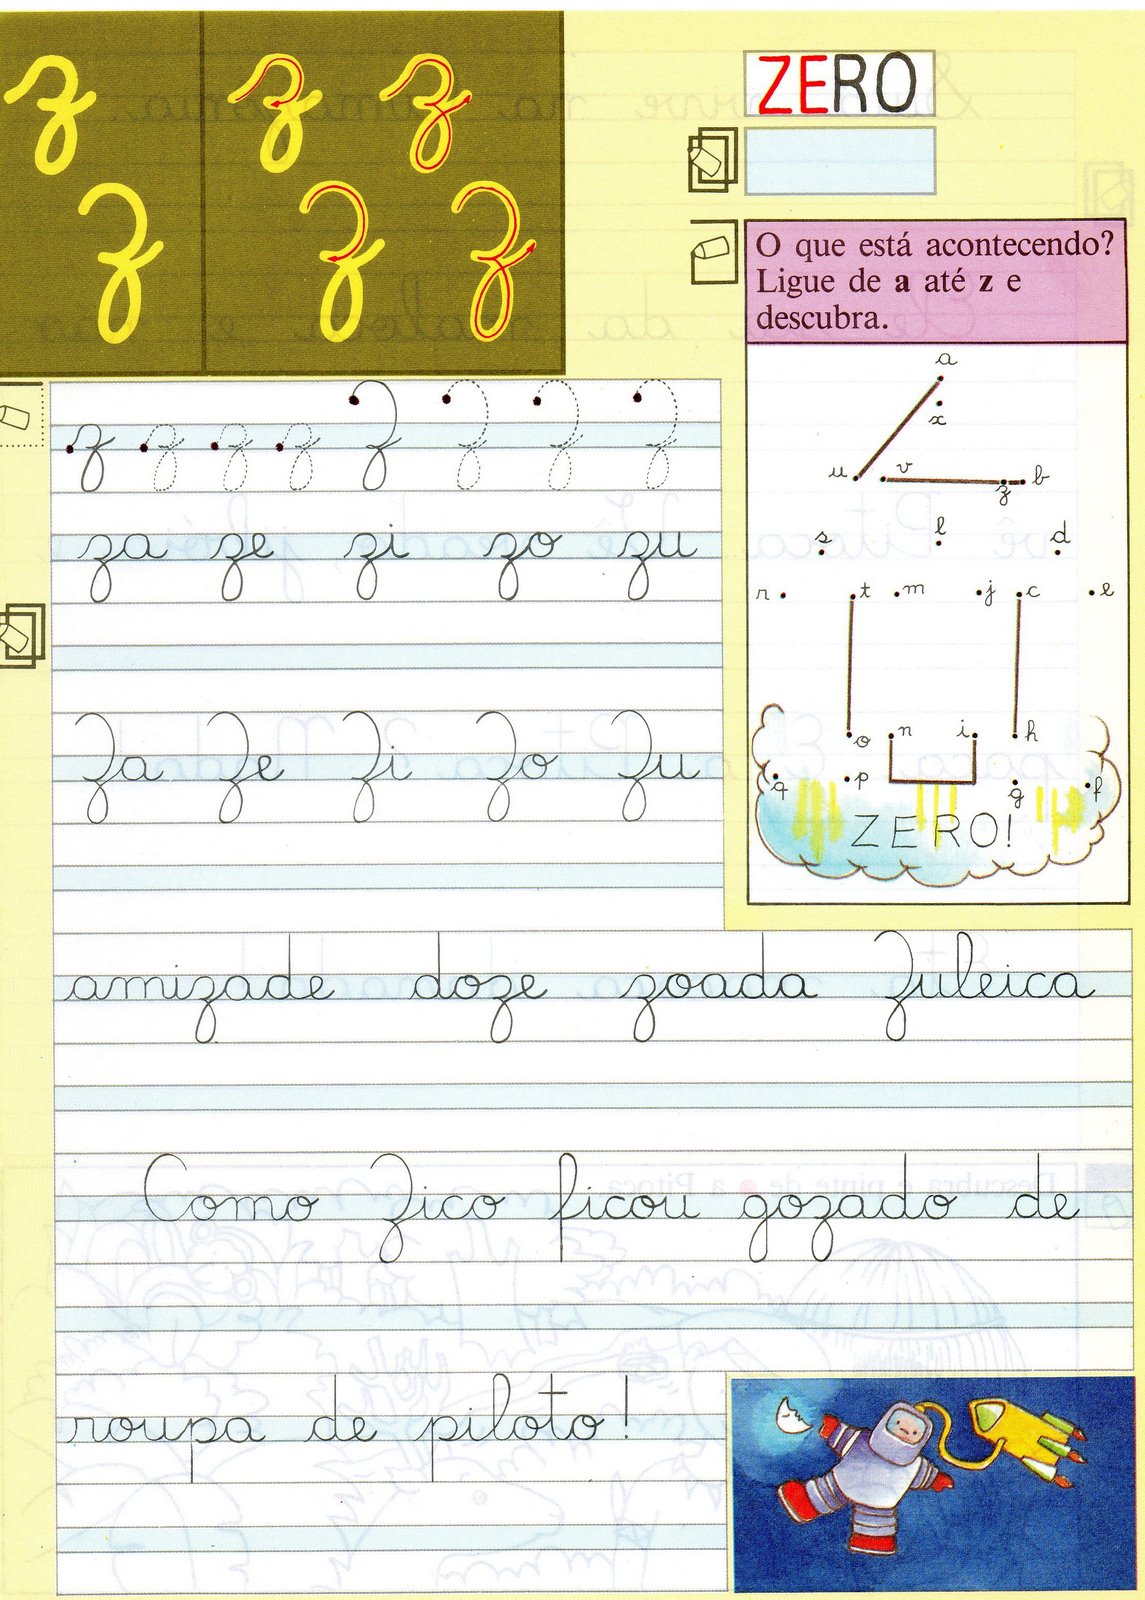 z z z
z z z
ZERO
O que está acontecendo?
Ligue de a até z e
descubra.
a
x
u v z b
s l d
r t m j c e
o n i h
q p g f
ZERO!
z z z z Z Z Z Z
za ze zi zo zu
Za Ze Zi Zo Zu
amizade doze zoada Zuleica
Como Zico ficou gozado de
roupa de piloto!